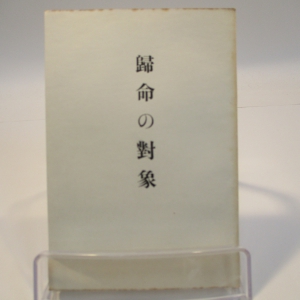 歸命の對象